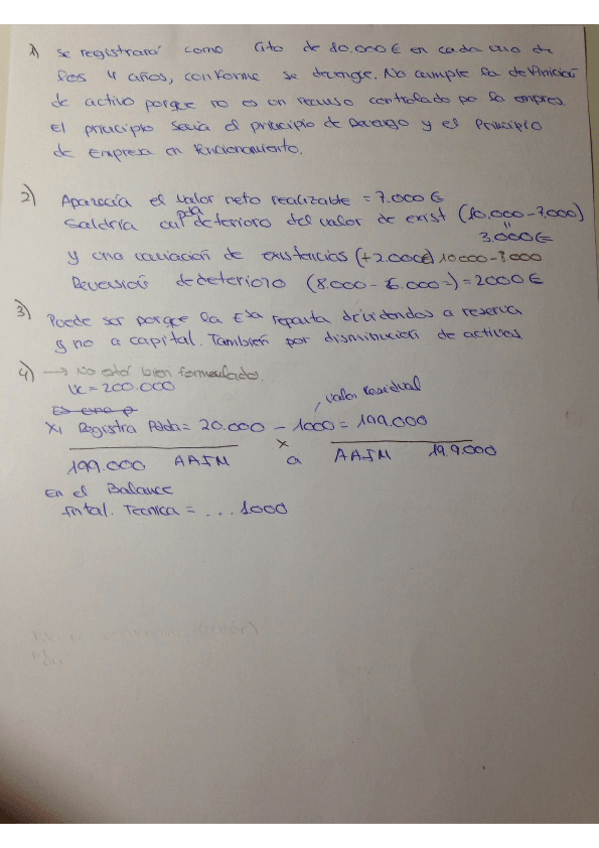 1) Se registrará como Gto de 10.000€ en cada uno de
los 4 años, conforme se devengue. No cumple la definición
de activo porque no es un recurso controlado por la empres.
El principio sería el principio de Devengo y el Principio
de Empresa en Funcionamiento.
2) Aparecía el valor neto realizable = 7.000€
Saldría cul pda deterioro del valor de exist (10.000-7.000)
"
3.000€
y una variación de existencias (+2.000€) 10000-8000
Reversión de deterioro (8.000-6.000=) = 2000€
3) Puede ser porque la Esa reparta dividendos a reserva
y no a capital. También por disminución de activos
4) → No está bien formulado.
VC = 200.000
valor residual
X1 Registra Pdda = 20.000 - 1000 = 199.000
x
199.000 AAIM a AAIM 199.000
En el Balance
Intal. Técnica = ... 1000